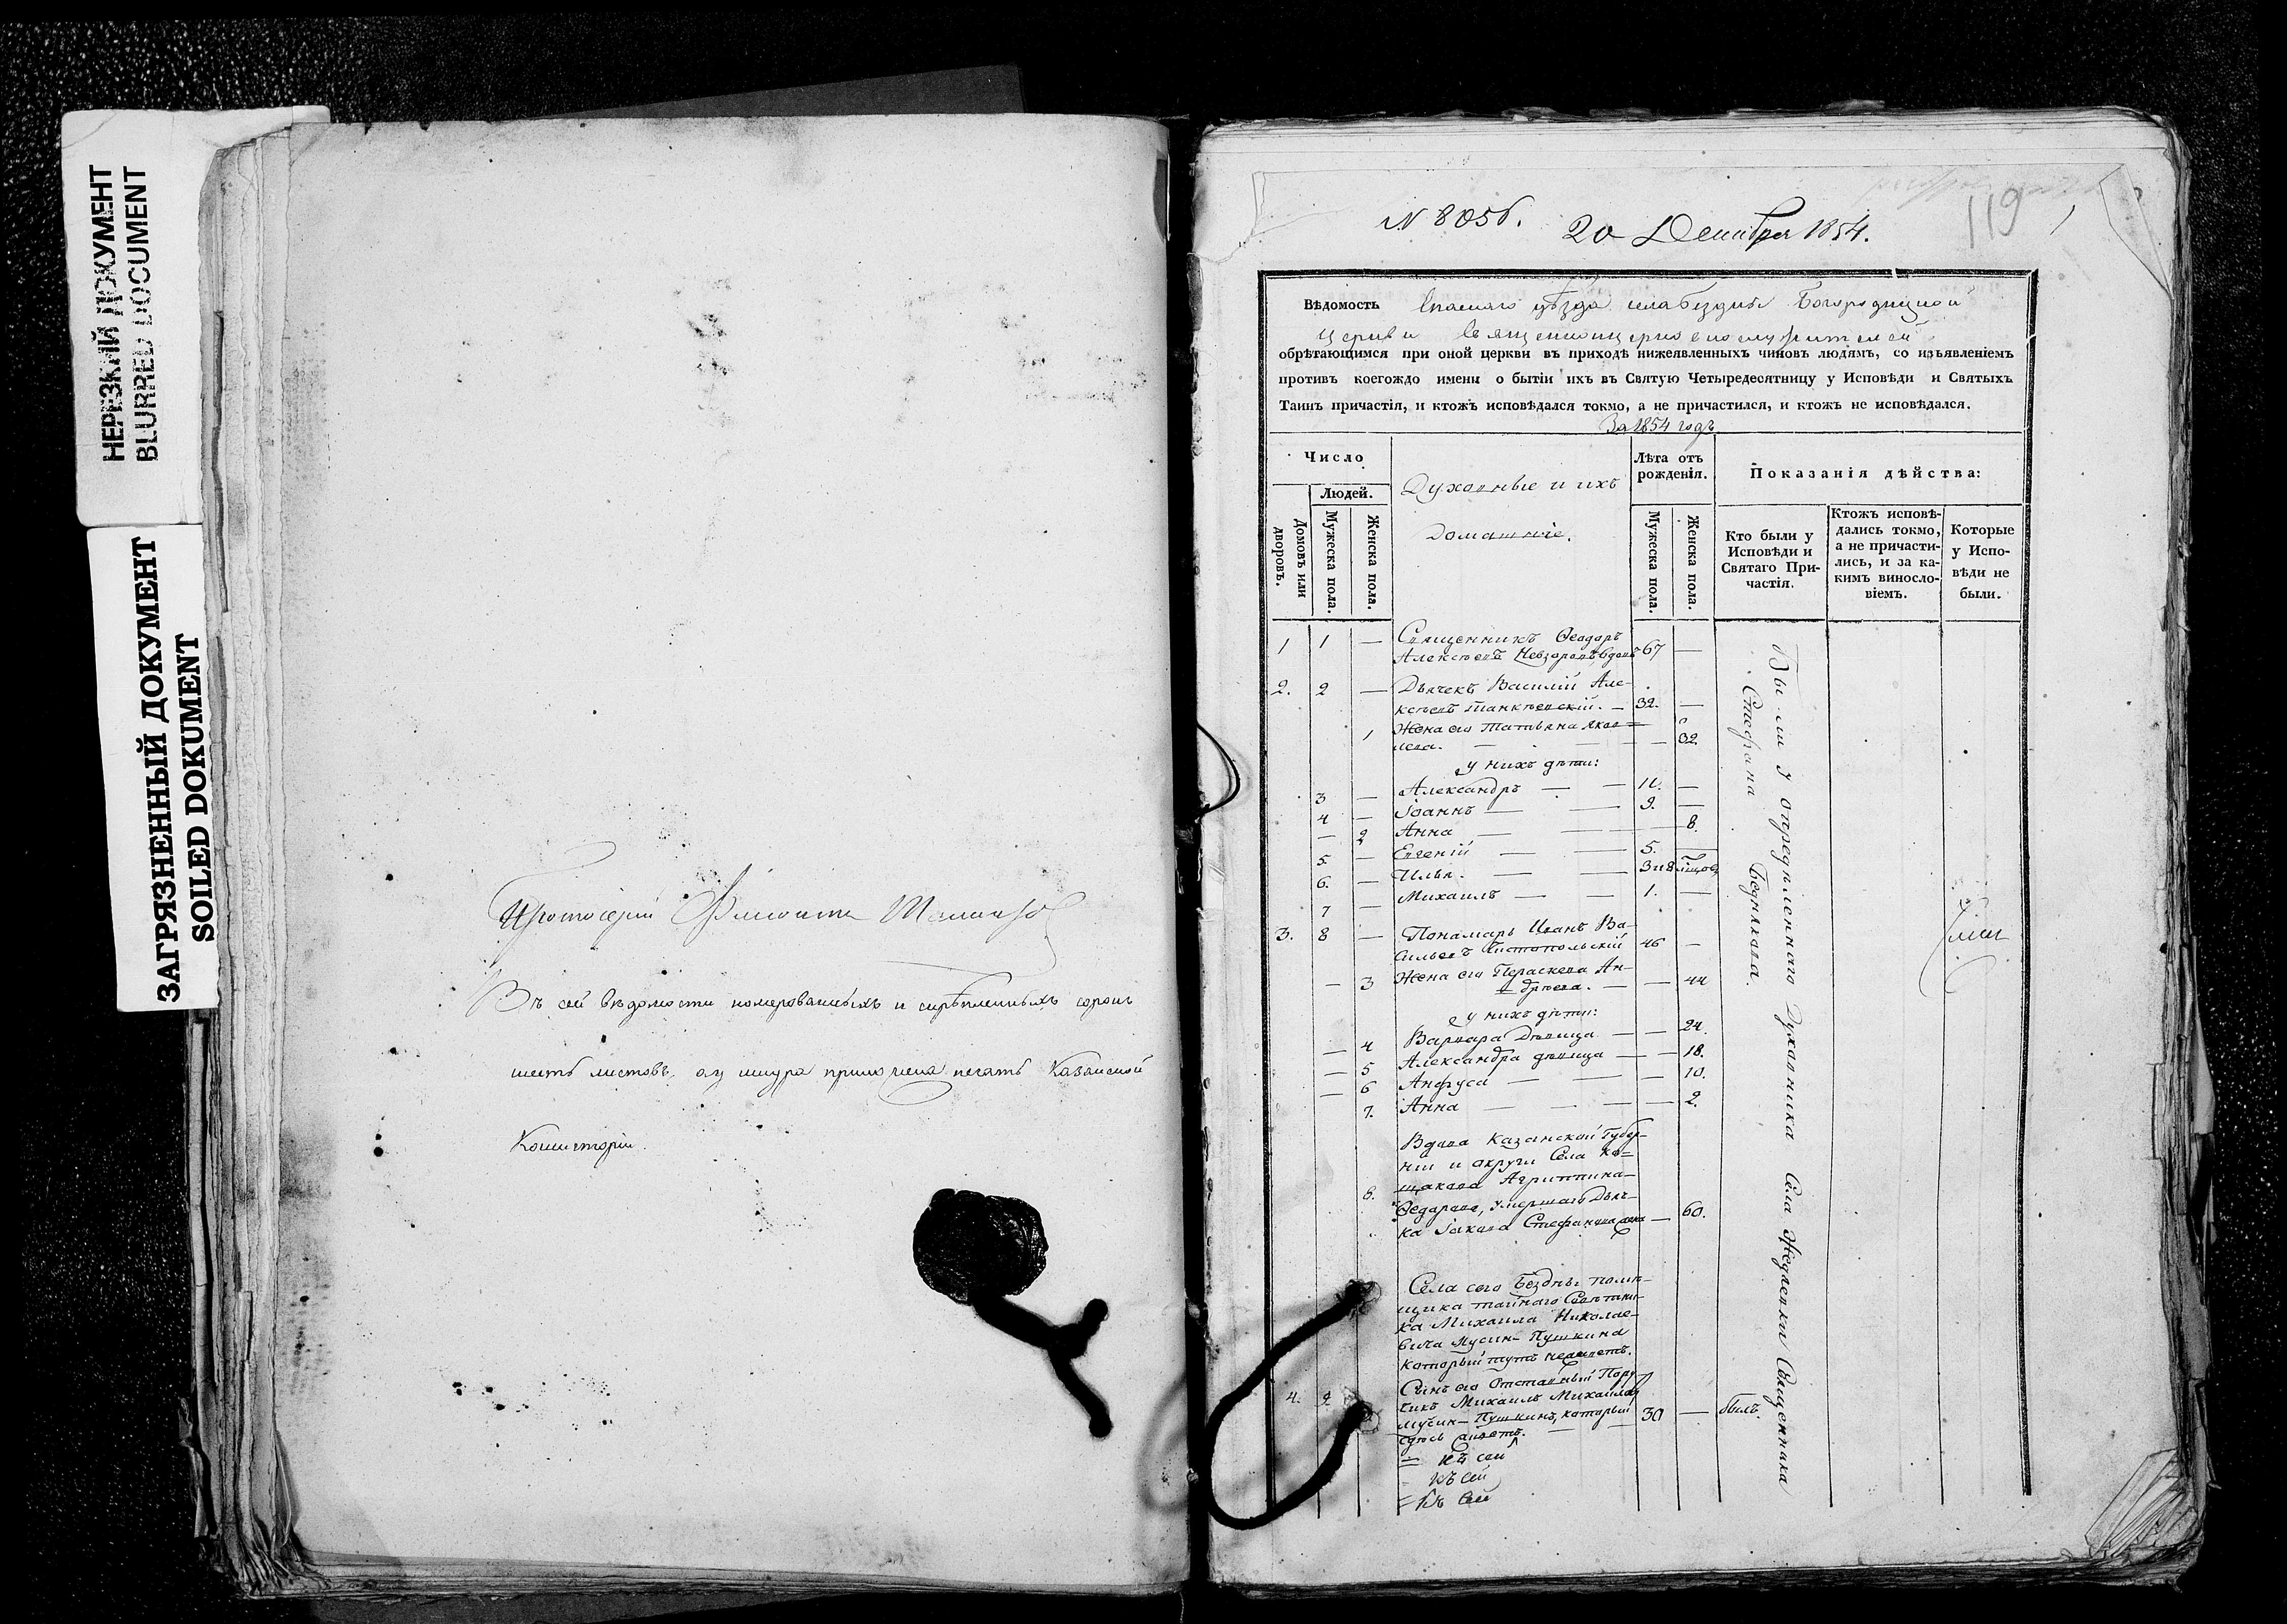 НЕРЕЗКИЙ ДОКУМЕНТ
BLURRED DOCUMENT
ЗАГРЯЗНЕННЫЙ ДОКУМЕНТ
SOILED DOKUMENT
Протоіерей
Въ сей вѣдомости номерованныхъ и скрѣпленныхъ сорокъ
шесть листовъ, а у шнура приложена печать Казанской
Консисторіи.
N 8056.
20 Декабря 1854.
119
Вѣдомость Спасскаго уѣзда села Бездны Богородицкой
церкви Священноцерковнослужителей
обрѣтающимся при оной церкви въ приходѣ нижеявленныхъ чиновъ людямъ, со изъявленіемъ
противъ коегождо имени о бытіи ихъ въ Святую Четыредесятницу у Исповѣди и Святыхъ
Таинъ причастія, и ктожъ исповѣдался токмо, а не причастился, и ктожъ не исповѣдался.
За 1854 годъ
Число
Людей.
Домовъ или дворовъ.
Мужеска пола.
Женска пола.
Духовные и ихъ
домашніе.
Лѣта отъ рожденія.
Мужеска пола.
Женска пола.
Показанія дѣйства:
Кто были у Исповѣди и Святаго Причастія.
Ктожъ исповѣдались токмо, а не причастились, и за какимъ винословіемъ.
Которые у Исповѣди не были.
1 1 — Священникъ Ѳеодоръ
Алексѣевъ Невзоровъ вдовъ 67 —
2. 2 — Дьячекъ Василій Але-
ксѣевъ Танкѣевскій. — 32. —
1 Жена его Татьяна Яков=
лева. — — — 32.
у нихъ дѣти:
3 — Александръ — — 11. —
4 — Іоаннъ — — 9. —
— 2 Анна — — — 8.
5. — Евгеній — — 5. —
6. — Илья. — — 3 и 8
7 — Михаилъ — — 1. —
3. 8 — Пономарь Иванъ Ва-
сильевъ Чистопольскій 46 —
— 3 Жена его Параскева Ан-
дреева. — — 44
у нихъ дѣти:
— 4 Варвара дѣвица — — 24.
— 5 Александра дѣвица — — 18.
— 6 Анфуса — — — 10.
7. Анна — — — 2.
Вдова Казанской Губер-
ніи и округи Села Ко=
щакова Агриппина
8. Ѳедорова, умершаго Дьяч-
ка Іакова Стефанова жена — 60.
Села сего Бездны помѣ-
щика тайнаго Совѣтни-
ка Михаила Николае-
вича Мусин-Пушкина
который тутъ неживетъ.
4. 9 Сынъ его Отставный Пору-
чикъ Михаилъ Михайловъ
Мусин-Пушкинъ, который 30 — былъ.
здѣсь живетъ. —
= къ сей
къ сей
= Къ сей
Были у опредѣленнаго духовника Села Жедяевки Священника
Стефана Беднякова.